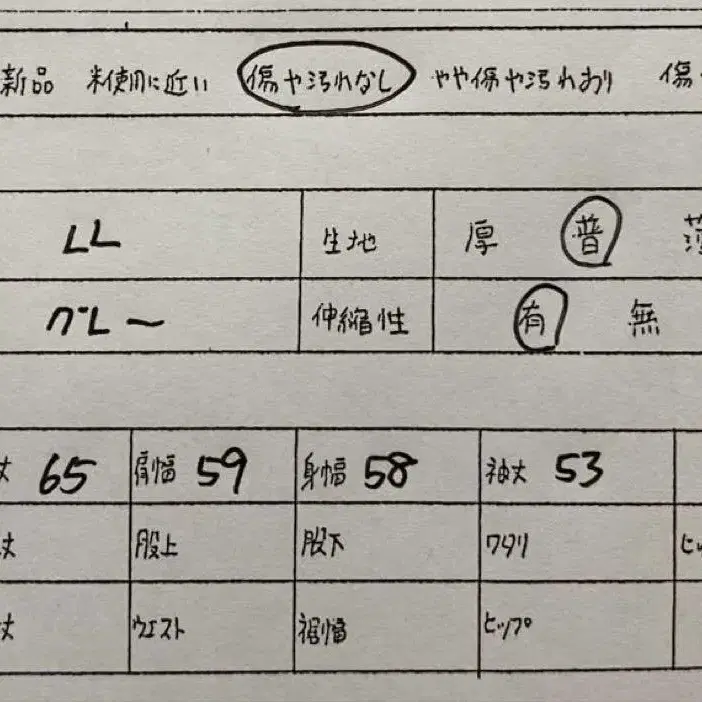 新品 未使用に近い 傷や汚れなし やや傷や汚れあり 傷
LL 生地 厚 普 薄
グレー 伸縮性 有 無
丈 65 肩幅 59 身幅 58 袖丈 53
丈 股上 股下 ワタリ ヒッ
丈 ウエスト 裾幅 ヒップ